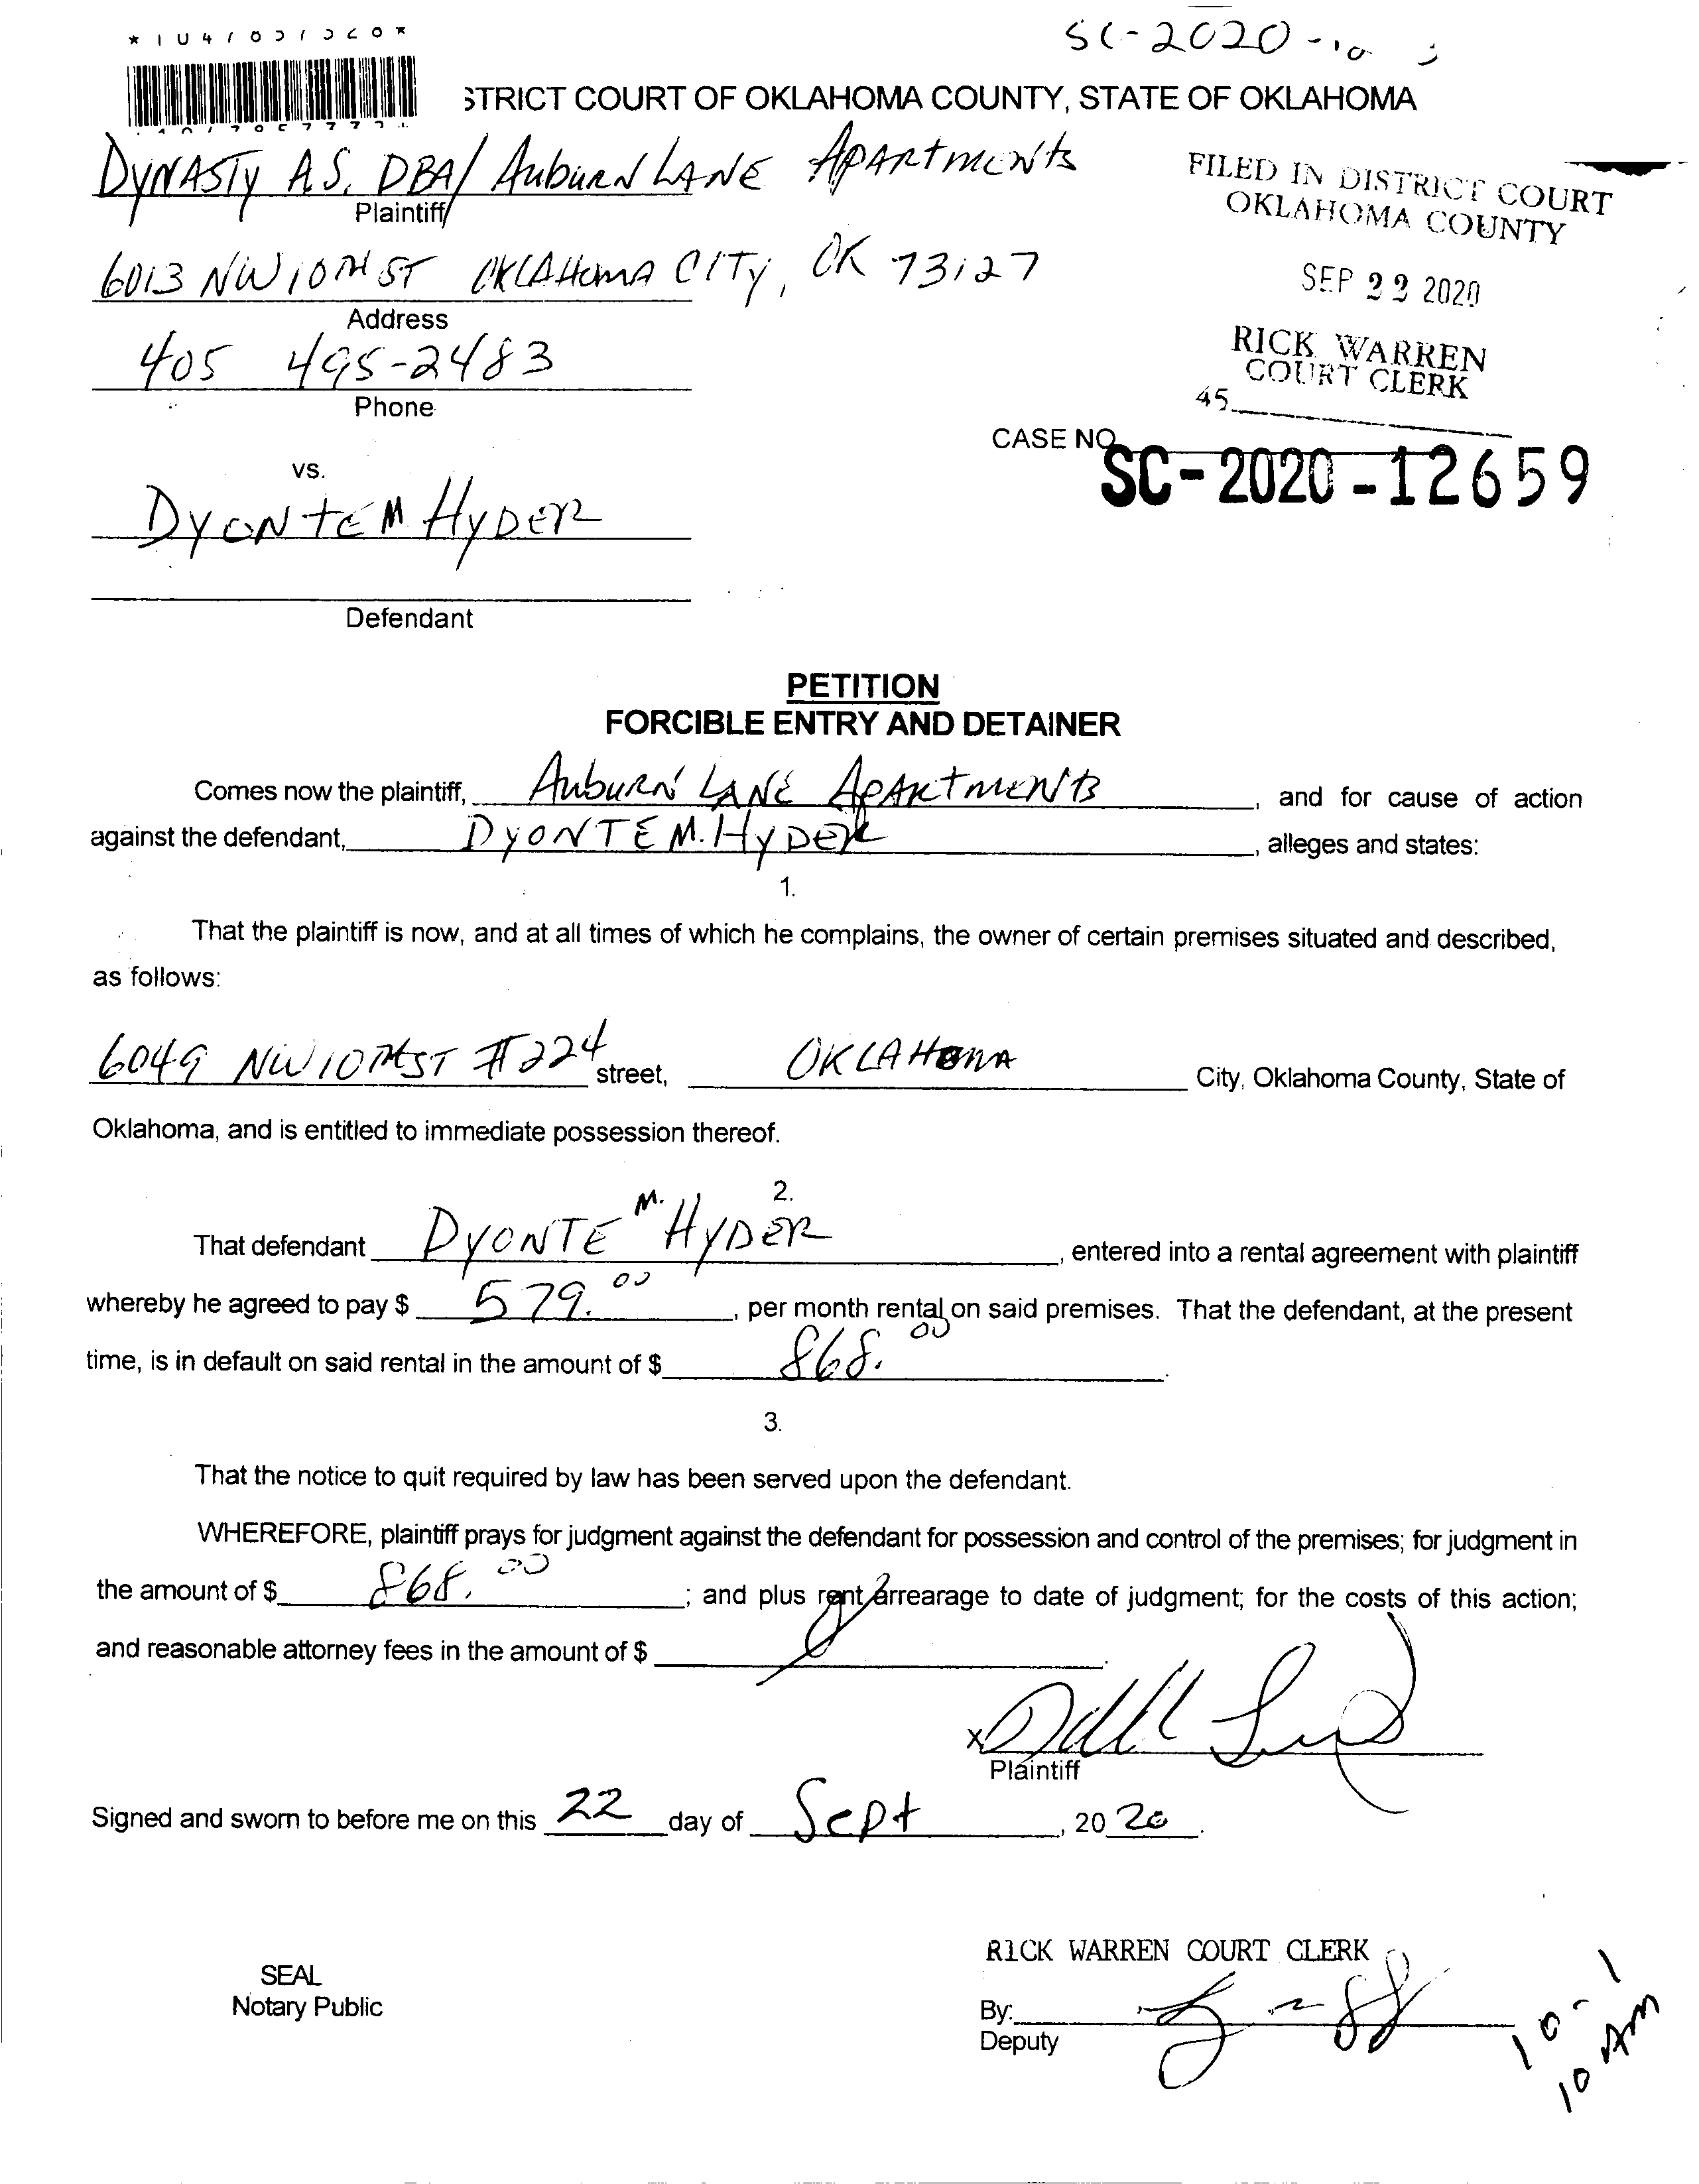 SC-2020-10
STRICT COURT OF OKLAHOMA COUNTY, STATE OF OKLAHOMA
DYNASTY A.S. DBA/ AUBURN LANE APARTMENTS
Plaintiff
FILED IN DISTRICT COURT
OKLAHOMA COUNTY
6013 NW 10TH ST OKLAHOMA CITY, OK 73127
Address
SEP 22 2020
405 495-2483
Phone
RICK WARREN
COURT CLERK
45
CASE NO.
SC-2020-12659
vs.
DYONTE M HYDER
Defendant
PETITION
FORCIBLE ENTRY AND DETAINER
Comes now the plaintiff, AUBURN LANE APARTMENTS, and for cause of action
against the defendant, DYONTE M. HYDER, alleges and states:
1.
That the plaintiff is now, and at all times of which he complains, the owner of certain premises situated and described,
as follows:
6049 NW 10TH ST #224 street, OKLAHOMA City, Oklahoma County, State of
Oklahoma, and is entitled to immediate possession thereof.
2.
That defendant DYONTE M. HYDER, entered into a rental agreement with plaintiff
whereby he agreed to pay $ 579.00, per month rental on said premises. That the defendant, at the present
time, is in default on said rental in the amount of $ 868.00.
3.
That the notice to quit required by law has been served upon the defendant.
WHEREFORE, plaintiff prays for judgment against the defendant for possession and control of the premises; for judgment in
the amount of $ 868.00; and plus rent arrearage to date of judgment; for the costs of this action;
and reasonable attorney fees in the amount of $
X
Plaintiff
Signed and sworn to before me on this 22 day of Sept, 2020.
RICK WARREN COURT CLERK
SEAL
Notary Public
By:
Deputy
10-1
10 AM